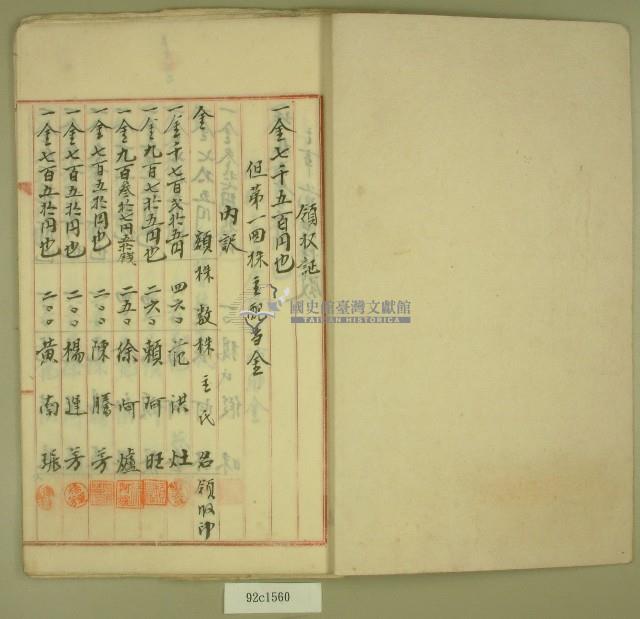 領収証
一金七千五百円也
但第一回株主配当金
内訳
金額 株数 株主氏名 領收印
一金千七百弐拾五円 四六〇 范洪灶
一金九百七拾五円也 二六〇 賴阿旺
一金九百参拾七円五拾銭 二五〇 徐阿爐
一金七百五拾円也 二〇〇 陳騰芳
一金七百五拾円也 二〇〇 楊運芳
一金七百五拾円也 二〇〇 黄南
國史館臺灣文獻館
TAIWAN HISTORICA
92c1560